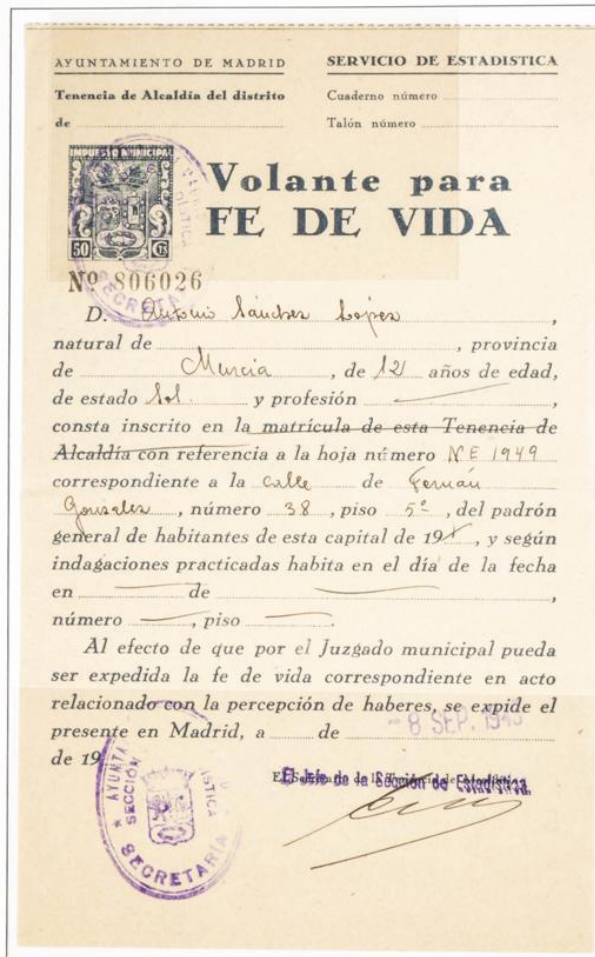 AYUNTAMIENTO DE MADRID
SERVICIO DE ESTADISTICA
Tenencia de Alcaldía del distrito
Cuaderno número
de
Talón número
IMPUESTO MUNICIPAL
50 CTS
Volante para
FE DE VIDA
Nº 806026
D. Antonio Sánchez López,
natural de , provincia
de Murcia, de 12 años de edad,
de estado Sol. y profesión ,
consta inscrito en la matrícula de esta Tenencia de
Alcaldía con referencia a la hoja número NE 1949
correspondiente a la calle de Fernán
Gonzalez, número 38, piso 5º, del padrón
general de habitantes de esta capital de 19 , y según
indagaciones practicadas habita en el día de la fecha
en de ,
número , piso .
Al efecto de que por el Juzgado municipal pueda
ser expedida la fe de vida correspondiente en acto
relacionado con la percepción de haberes, se expide el
presente en Madrid, a de - 8 SEP. 
de 19
El Jefe de la Sección de Estadística.
AYUNTA
SECCIÓN
SECRETARIA